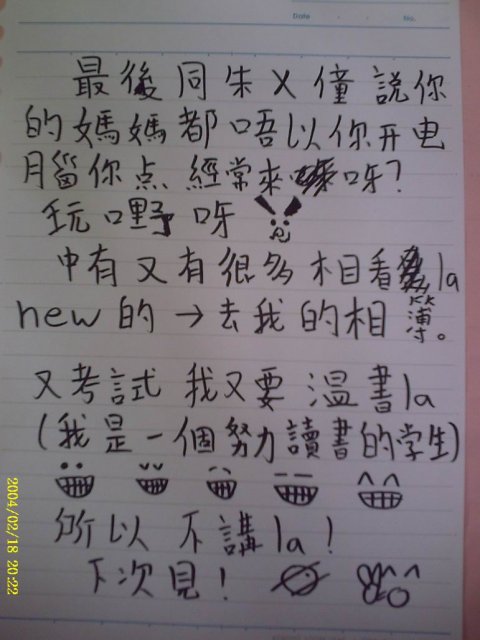 Date . . No.
最後同朱X僮說你
的媽媽都唔以你开电
腦你点經常來呀?
玩嘢呀
中有又有很多相看la
new的→去我的相簿。
又考試 我又要溫書la
(我是一個努力讀書的学生)
所以不講la!
下次見!
2004/02/18 20:22